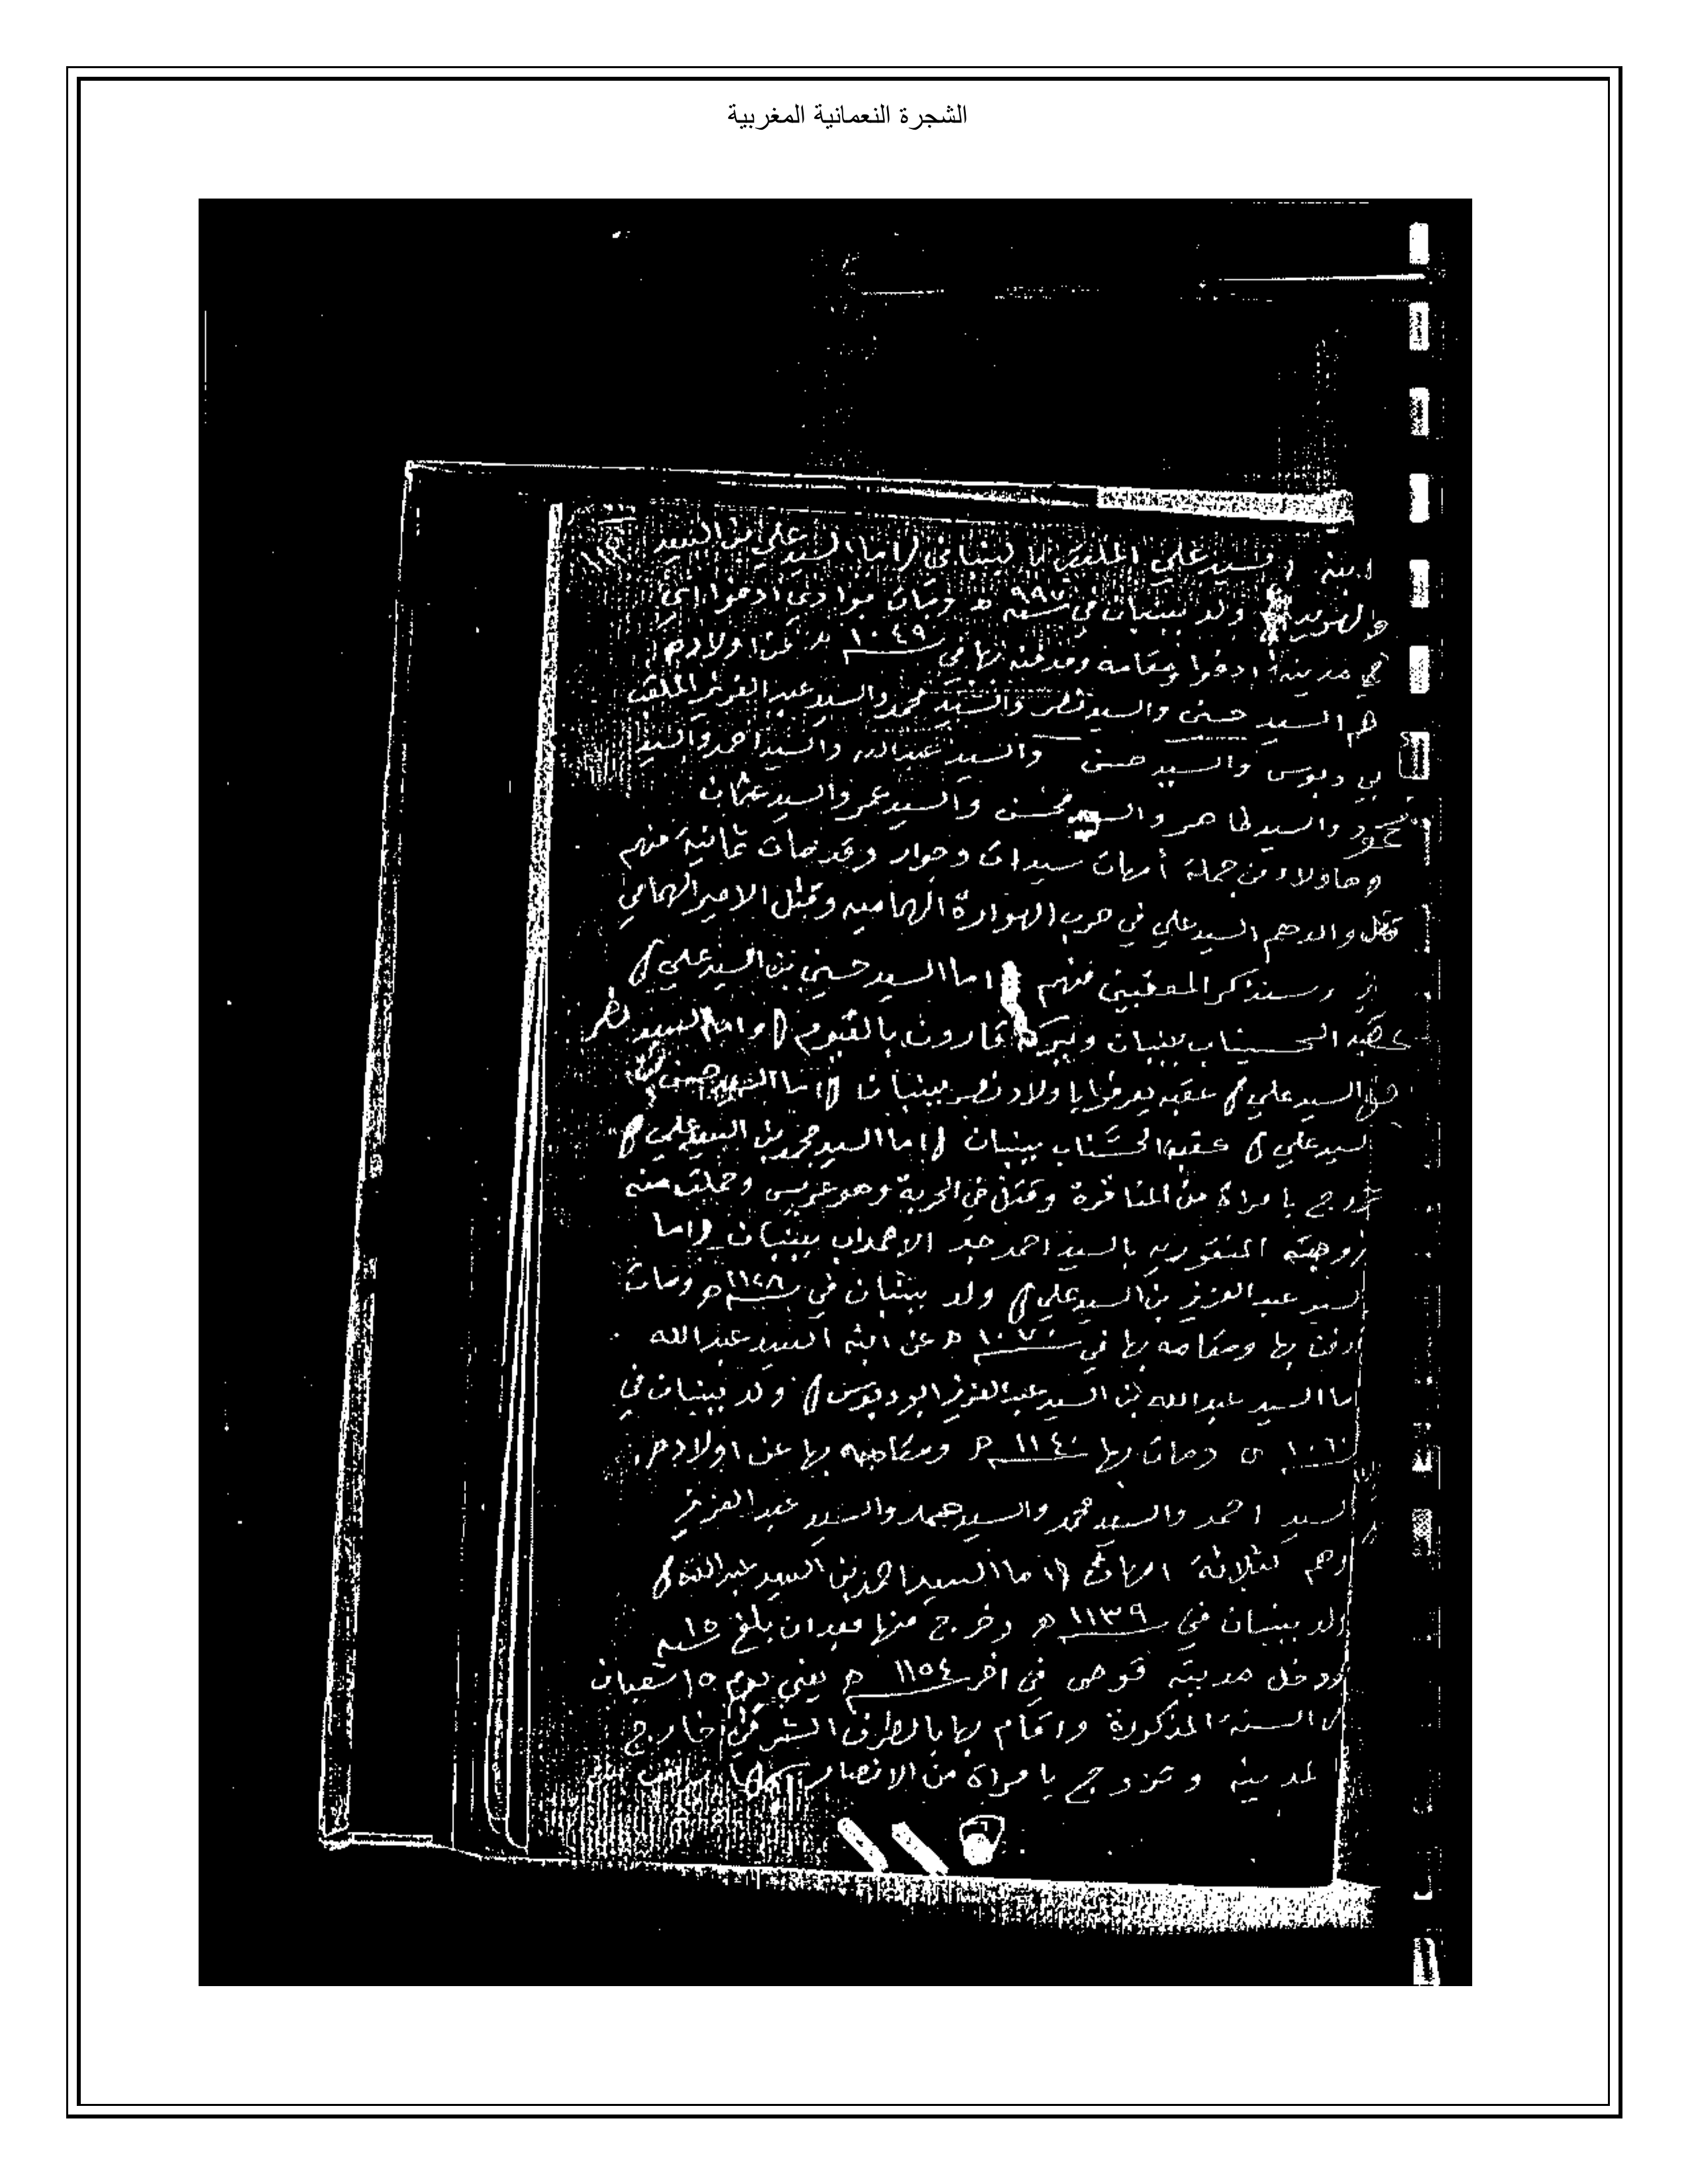 الشجرة النعمانية المغربية
ابنه السيد علي الملقب بالبنباني (اما السيد علي بن السيد
ولد ببنبان في سنة ٩٩٧ ه ومات بوادي أدفوا
مدينة ادفوا ومقامه ومدفنه بها في سنة ١٠٤٩ ه عن اولاده
هم السيد حسين والسيد نصر والسيد محمد والسيد عبد العزيز الملقب
بي دبوس والسيد حسن والسيد عبدالله والسيد احمد والسيد
والسيد طاهر والسيد محسن والسيد عمر والسيد عثمان
وهاولاد من جملة أمهات سيدات وجوار وقد مات ثمانية منهم
قتل والدهم السيد علي في حرب الهوارة الهماميه وقتل الامير الهمامي
وسنذكر المعقبين منهم (اما السيد حسين بن السيد علي)
الحسيناب ببنبان وبركة قارون بالفيوم (واما السيد نصر
السيد علي) عقبه يعرفوا باولاد نصر ببنبان (اما السيد حسن
لسيد علي) عقبه الحسناب ببنبان (اما السيد محمد بن السيد علي)
تزوج بامراة من المناقرة وقتل في الحربة وهو عريس وحملت منه
زوجته المنقوريه بالسيد احمد جد الاحمداب ببنبان (اما
لسيد عبد العزيز بن السيد علي) ولد ببنبان في سنة ومات
ودفن بها ومقامه بها في سنة ١٠٧٠ ه عن ابنه السيد عبدالله
ما السيد عبدالله بن السيد عبد العزيز ابو دبوس) ولد ببنبان في
١٠٦٠ ه ومات بها سنة ١١٤٠ ه ومقامه بها عن اولاده
السيد احمد والسيد محمد والسيد حمد والسيد عبد العزيز
وهم لثلاثة امهات (اما السيد احمد بن السيد عبدالله)
ولد ببنبان في سنة ١١٣٩ ه وخرج منها بعد ان بلغ ١٥ سنة
ودخل مدينة قوص في اخر سنة ١١٥٤ ه يعني يوم ١٥ شعبان
السنة المذكورة واقام بها بالطرف الشرقي خارج
لمدينه وتزوج بامراة من الانصار